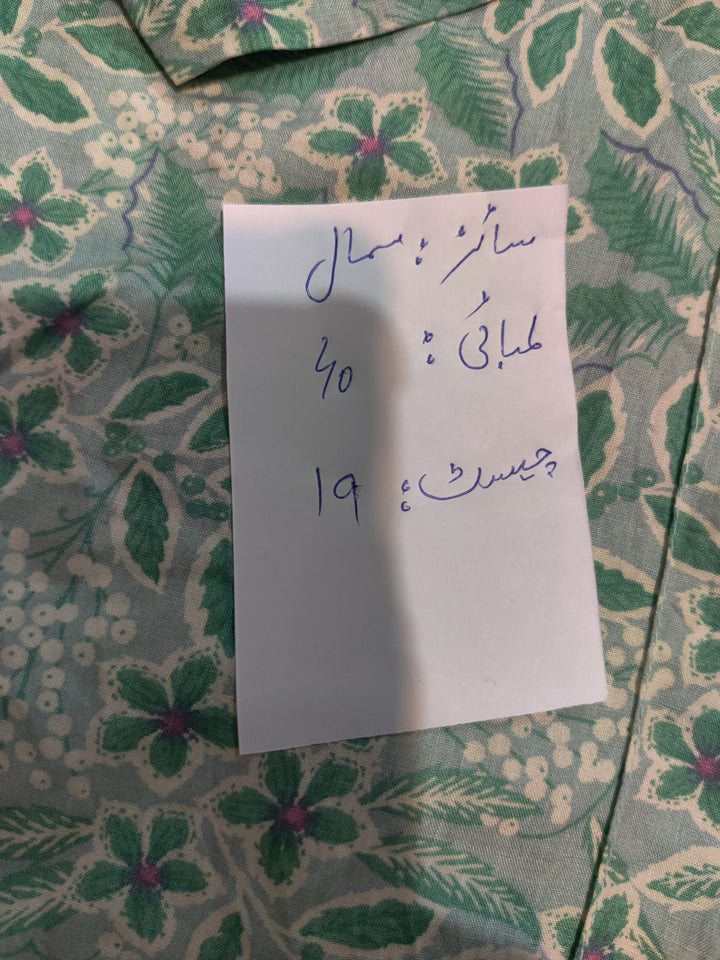 سائز : سمال
لمبائی : 40
چیسٹ : 19